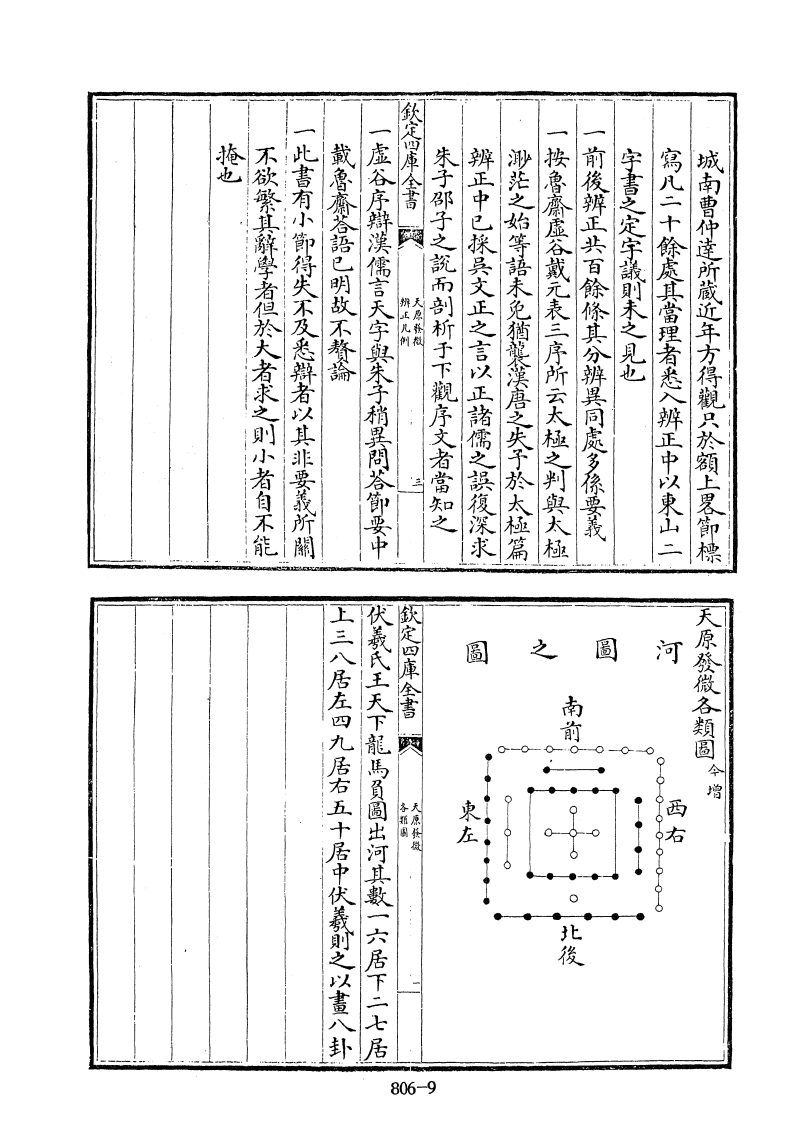 城南曹仲逹所蔵近年方得觀只於額上畧節標
寫凡二十餘處其當理者悉入辨正中以東山二
字書之定宇議則未之見也
一前後辨正共百餘條其分辨異同處多係要義
一按魯齋虛谷戴元表三序所云太極之判與太極
渺茫之始等語未免猶襲漢唐之失予於太極篇
辨正中已採吳文正之言以正諸儒之誤復深求
朱子邵子之說而剖析于下觀序文者當知之
欽定四庫全書
天原發微
辨正凡例
三
一虛谷序辯漢儒言天字與朱子稍異問荅節要中
載魯齋荅語已明故不贅論
一此書有小節得失不及悉辯者以其非要義所關
不欲繁其辭學者但於大者求之則小者自不能
掩也
天原發微各類圖 今增
河圖之圖
南前
西右
東左
北後
欽定四庫全書
天原發微
各類圖
一
伏羲氏王天下龍馬負圖出河其數一六居下二七居
上三八居左四九居右五十居中伏羲則之以畫八卦
806-9